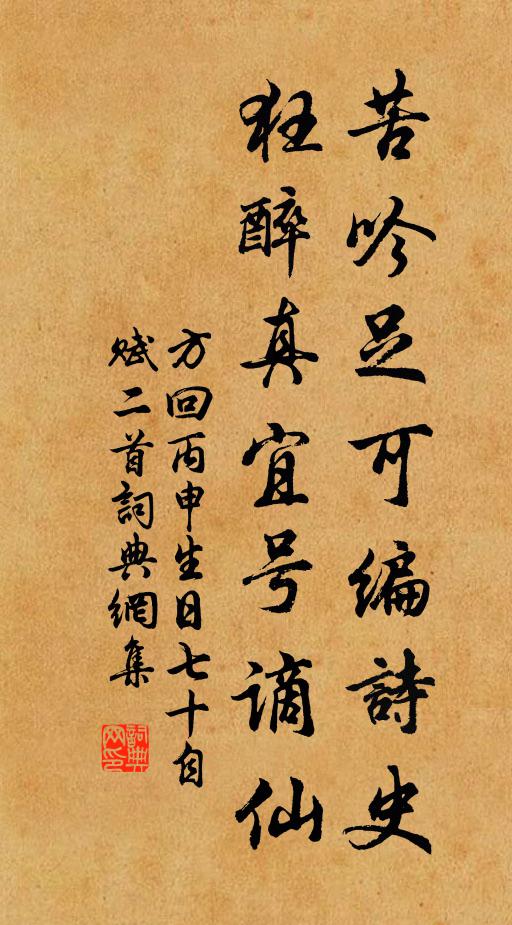 苦吟足可编詩史
狂醉真宜号谪仙
方回丙申生日七十自
赋二首詞典網集
詞典网印